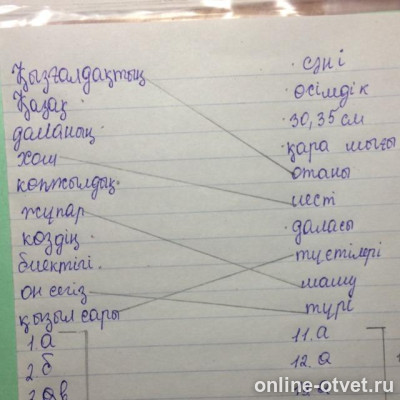 Қызғалдақтың
Қазақ
даланың
хош
көпжылдық
жұпар
көздің
биектігі
он сегіз
қызыл сары
1 а
2 б
сәні
өсімдік
30,35 см
қара
отаны
иесті
даласы
түстілері
мамы
түрі
11. а
12. а
online-otvet.ru